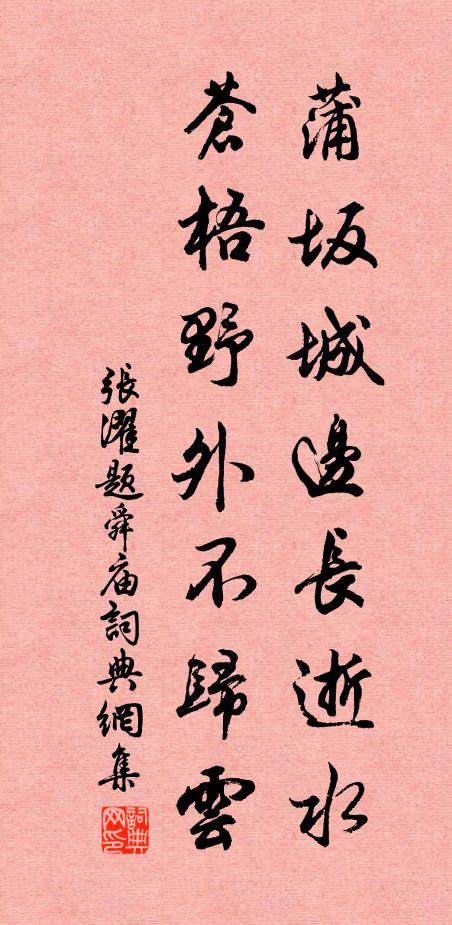 蒲坂城邊長逝水
蒼梧野外不歸雲
張濯題舜庙詞典網集
詞典网印